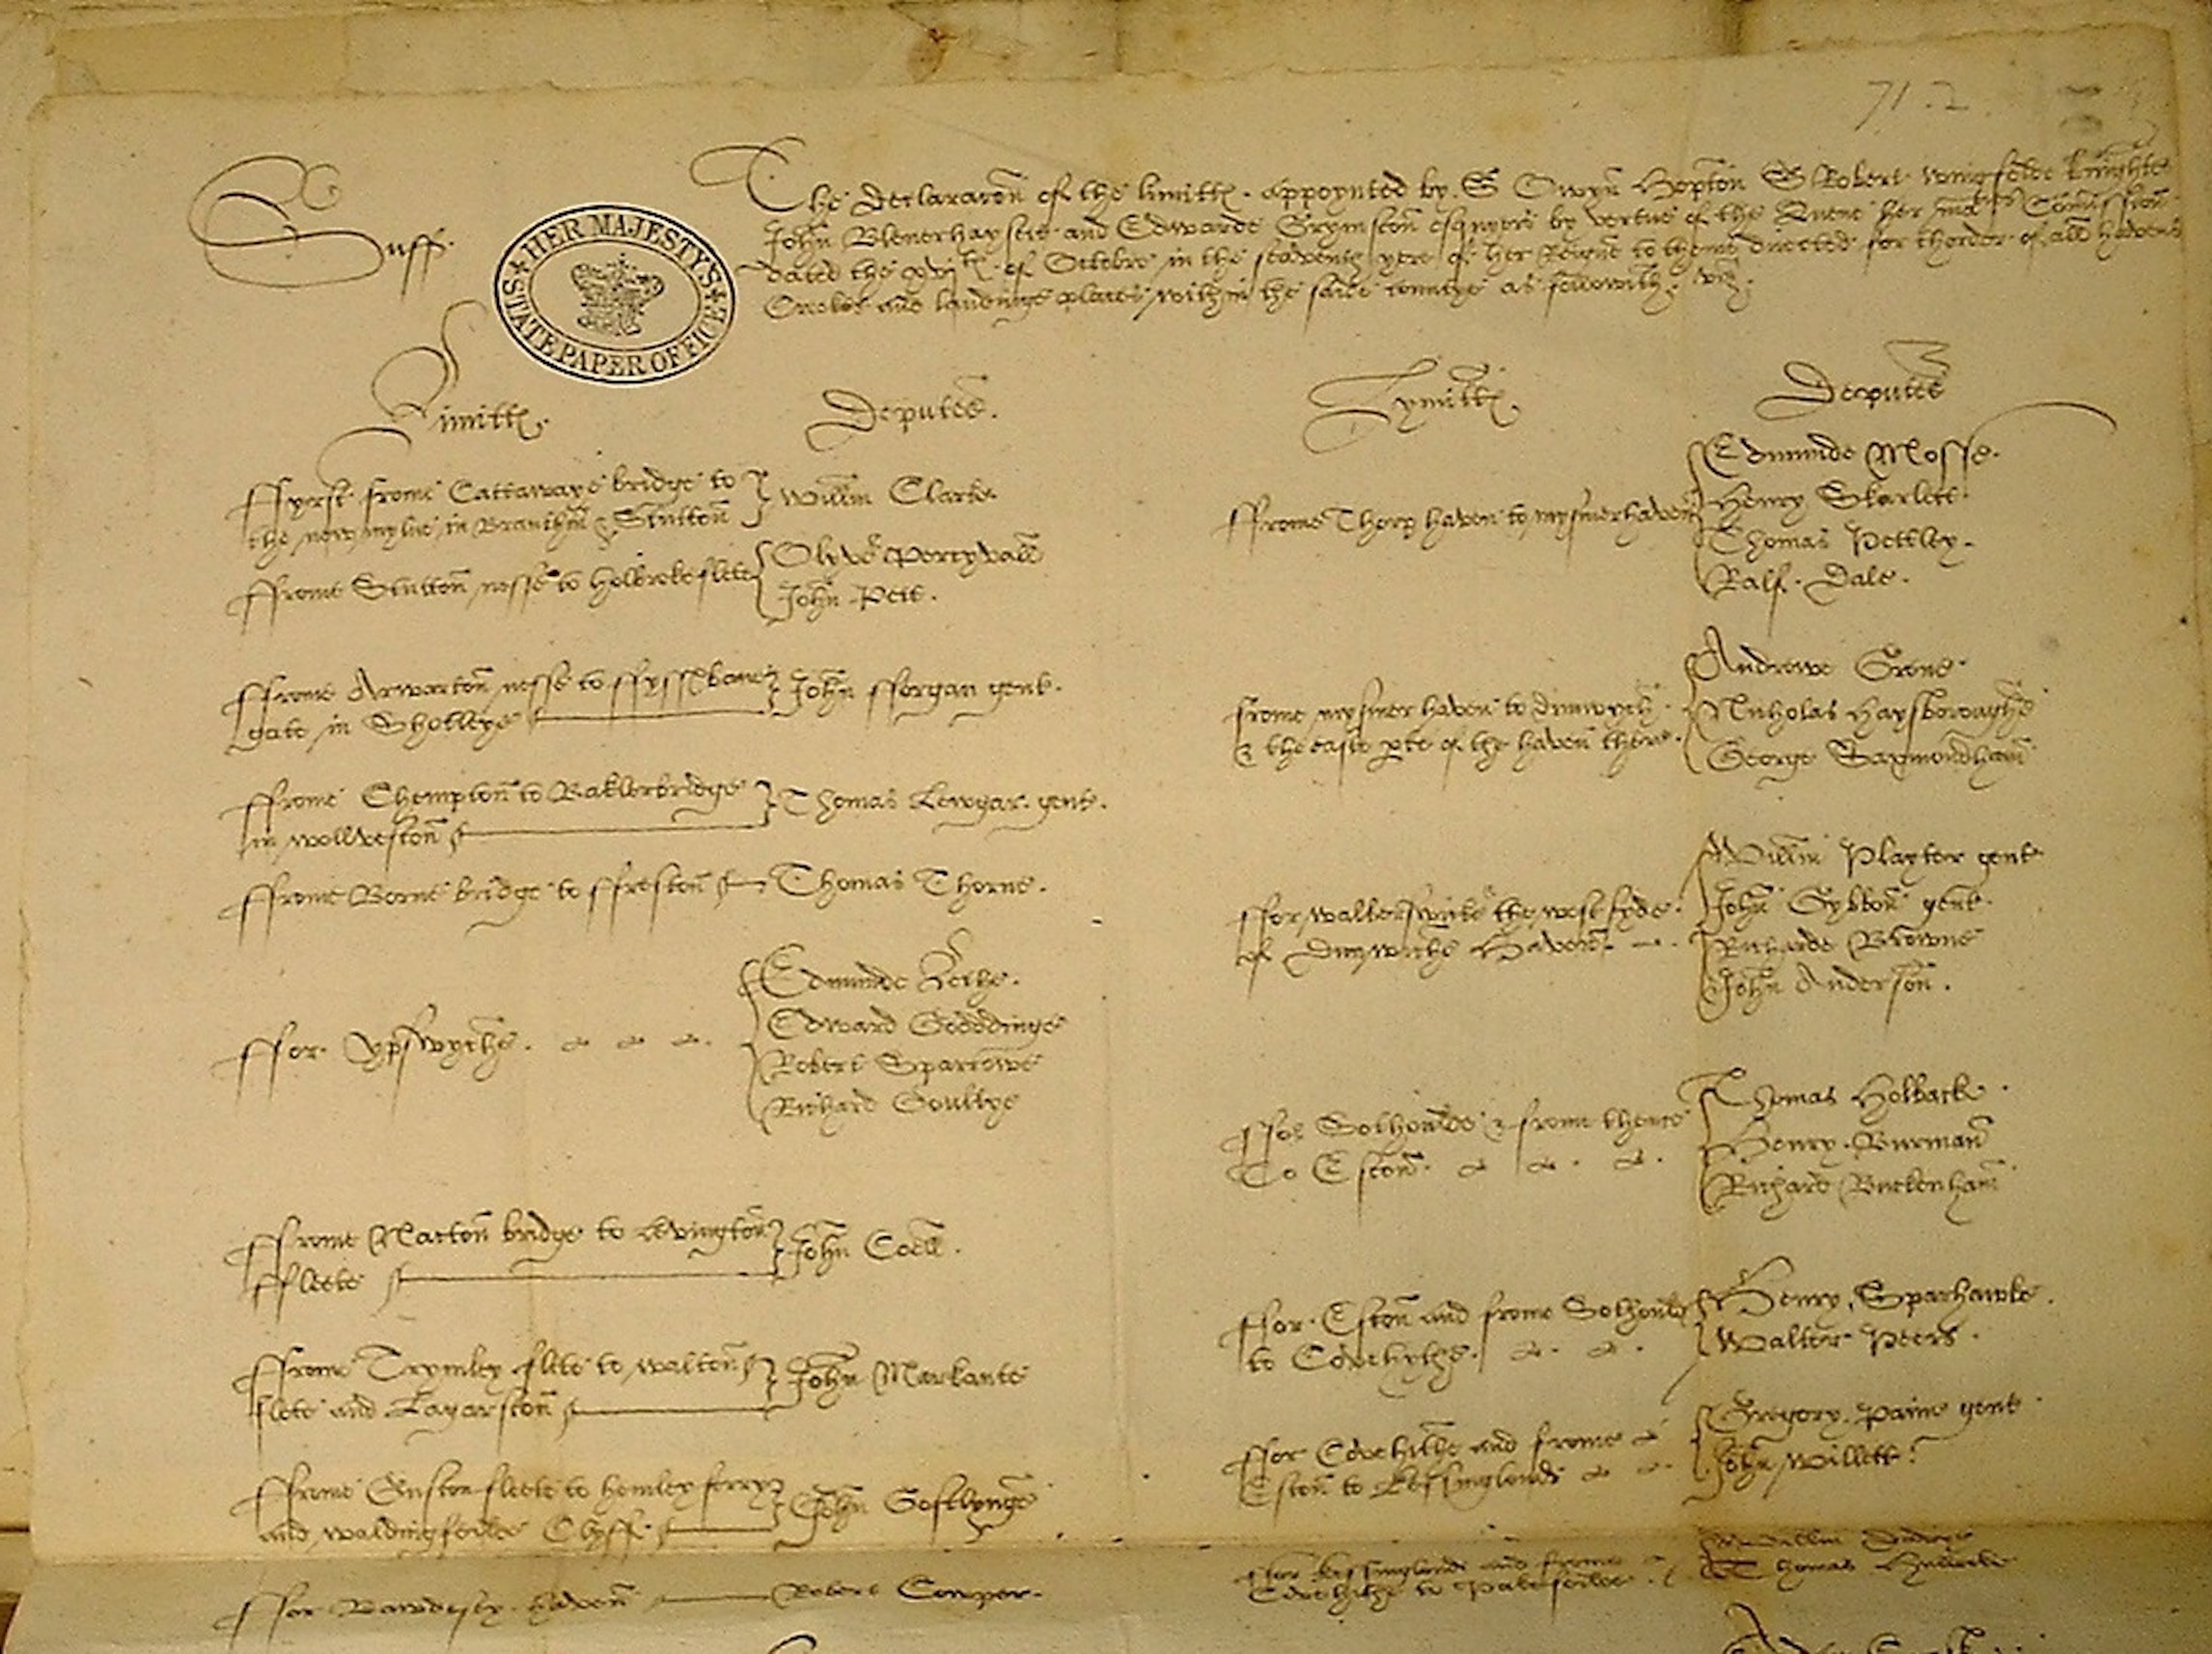 71.2
Suff.
HER MAJESTY'S STATE PAPER OFFICE
The declaracon of the limitts appoynted by S Owyn Hopton S Robert wingfelde knyghts
John Blenerhaysett and Edwarde Grymston esquyers by vertue of the Quene her Comission
dated the of Octobre in the seaventh yere of her Reigne to theme directed for thorder of all havens
Crekes and landinge places within the same countye as followith. viz.
Limitts.
Deputes.
ffyrst frome Cattawaye bridge to
the new mylne in Brantham & Stutton
Willm Clarke
ffrome Stutton nesse to holbroke flete
Olyver Percyvall
John Pett.
ffrome Arwarton nesse to
gate in Shotleye
John fforgan gent.
ffrome Chempton to bridge
in wollveston
Thomas Lewgar gent.
ffrome Borne bridge to ffreston
Thomas Thorne.
ffor ypswyche.
Edmunde Leche.
Edward Goodinge
Robert Sparrowe
Richard Goultye
ffrome Nacton bridge to Levington
ffleete
John Coell.
ffrome Trymley flete to walton
flete and
John Markante
ffrome Guston fleete to hemley ferry
and waldingfeilde Clyff.
John
ffor Bawdysey haven
Robert Cowper.
Lymitts
Deputes
ffrome Thorp haven to mysmer haven
Edmunde Mosse.
Henry Skarlett.
Thomas Pettley.
Ralf. Dale.
frome mysmer haven to dunwych
& the easte pte of the haven there.
Andrewe Grene.
Nicholas Haysboroughe
George Saxmondham
ffor walberswike the west syde
of Dunwiche Haven.
Willm Playter gent
John Gybbon gent.
Richarde Browne
John Anderson.
ffor Sothould & frome thence
To Eston.
Thomas Holback.
Henry Burman
Richard Buckenham
ffor Eston and frome Sothould
to Covehythe.
Henry Sparhawke.
Walter Peers.
ffor Covehithe and frome
Eston to Kessinglond
Gregory Paine gent.
John Willett.
ffor Kessinglond and frome
Covehithe to Pakefeilde.
Willm
Thomas